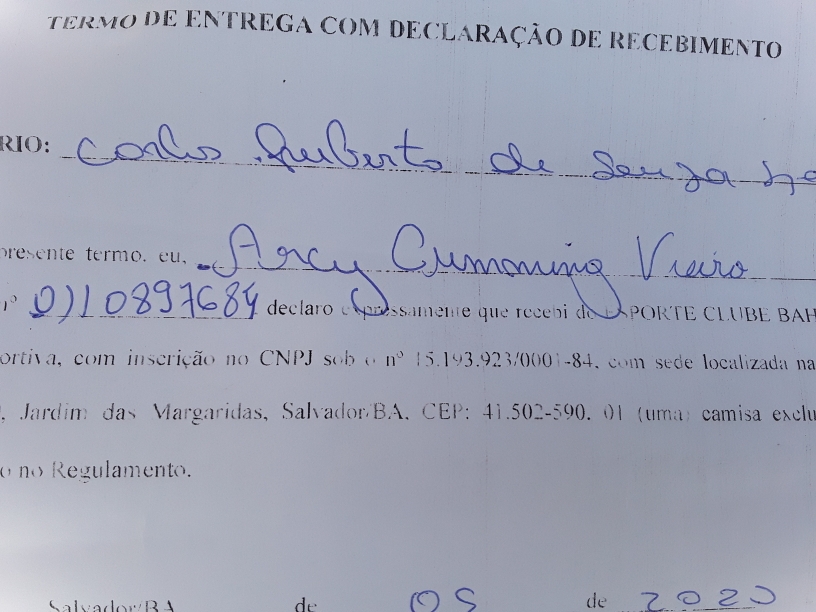 TERMO DE ENTREGA COM DECLARAÇÃO DE RECEBIMENTO
RIO: Carlos Ruberto de Souza
presente termo, eu, Arcy Cumming Vieira
nº 0110897684 declaro expressamente que recebi do ESPORTE CLUBE BAH
ortiva, com inscrição no CNPJ sob o nº 15.193.923/0001-84, com sede localizada na
, Jardim das Margaridas, Salvador/BA. CEP: 41.502-590. 01 (uma) camisa exclu
o no Regulamento.
Salvador/BA de 05 de 2020